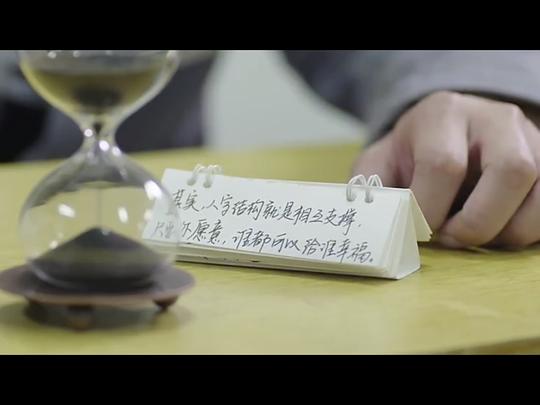 其实，人字结构就是相互支撑，
只要你愿意，谁都可以给谁幸福。